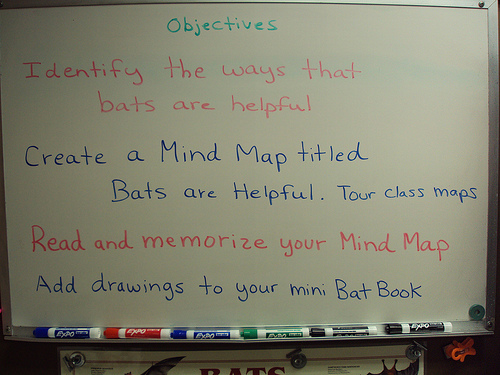 Objectives
Identify the ways that
bats are helpful
Create a Mind Map titled
Bats are Helpful. Tour class maps
Read and memorize your Mind Map
Add drawings to your mini Bat Book
EXPO EXPO EXPO EXPO EXPO
BATS